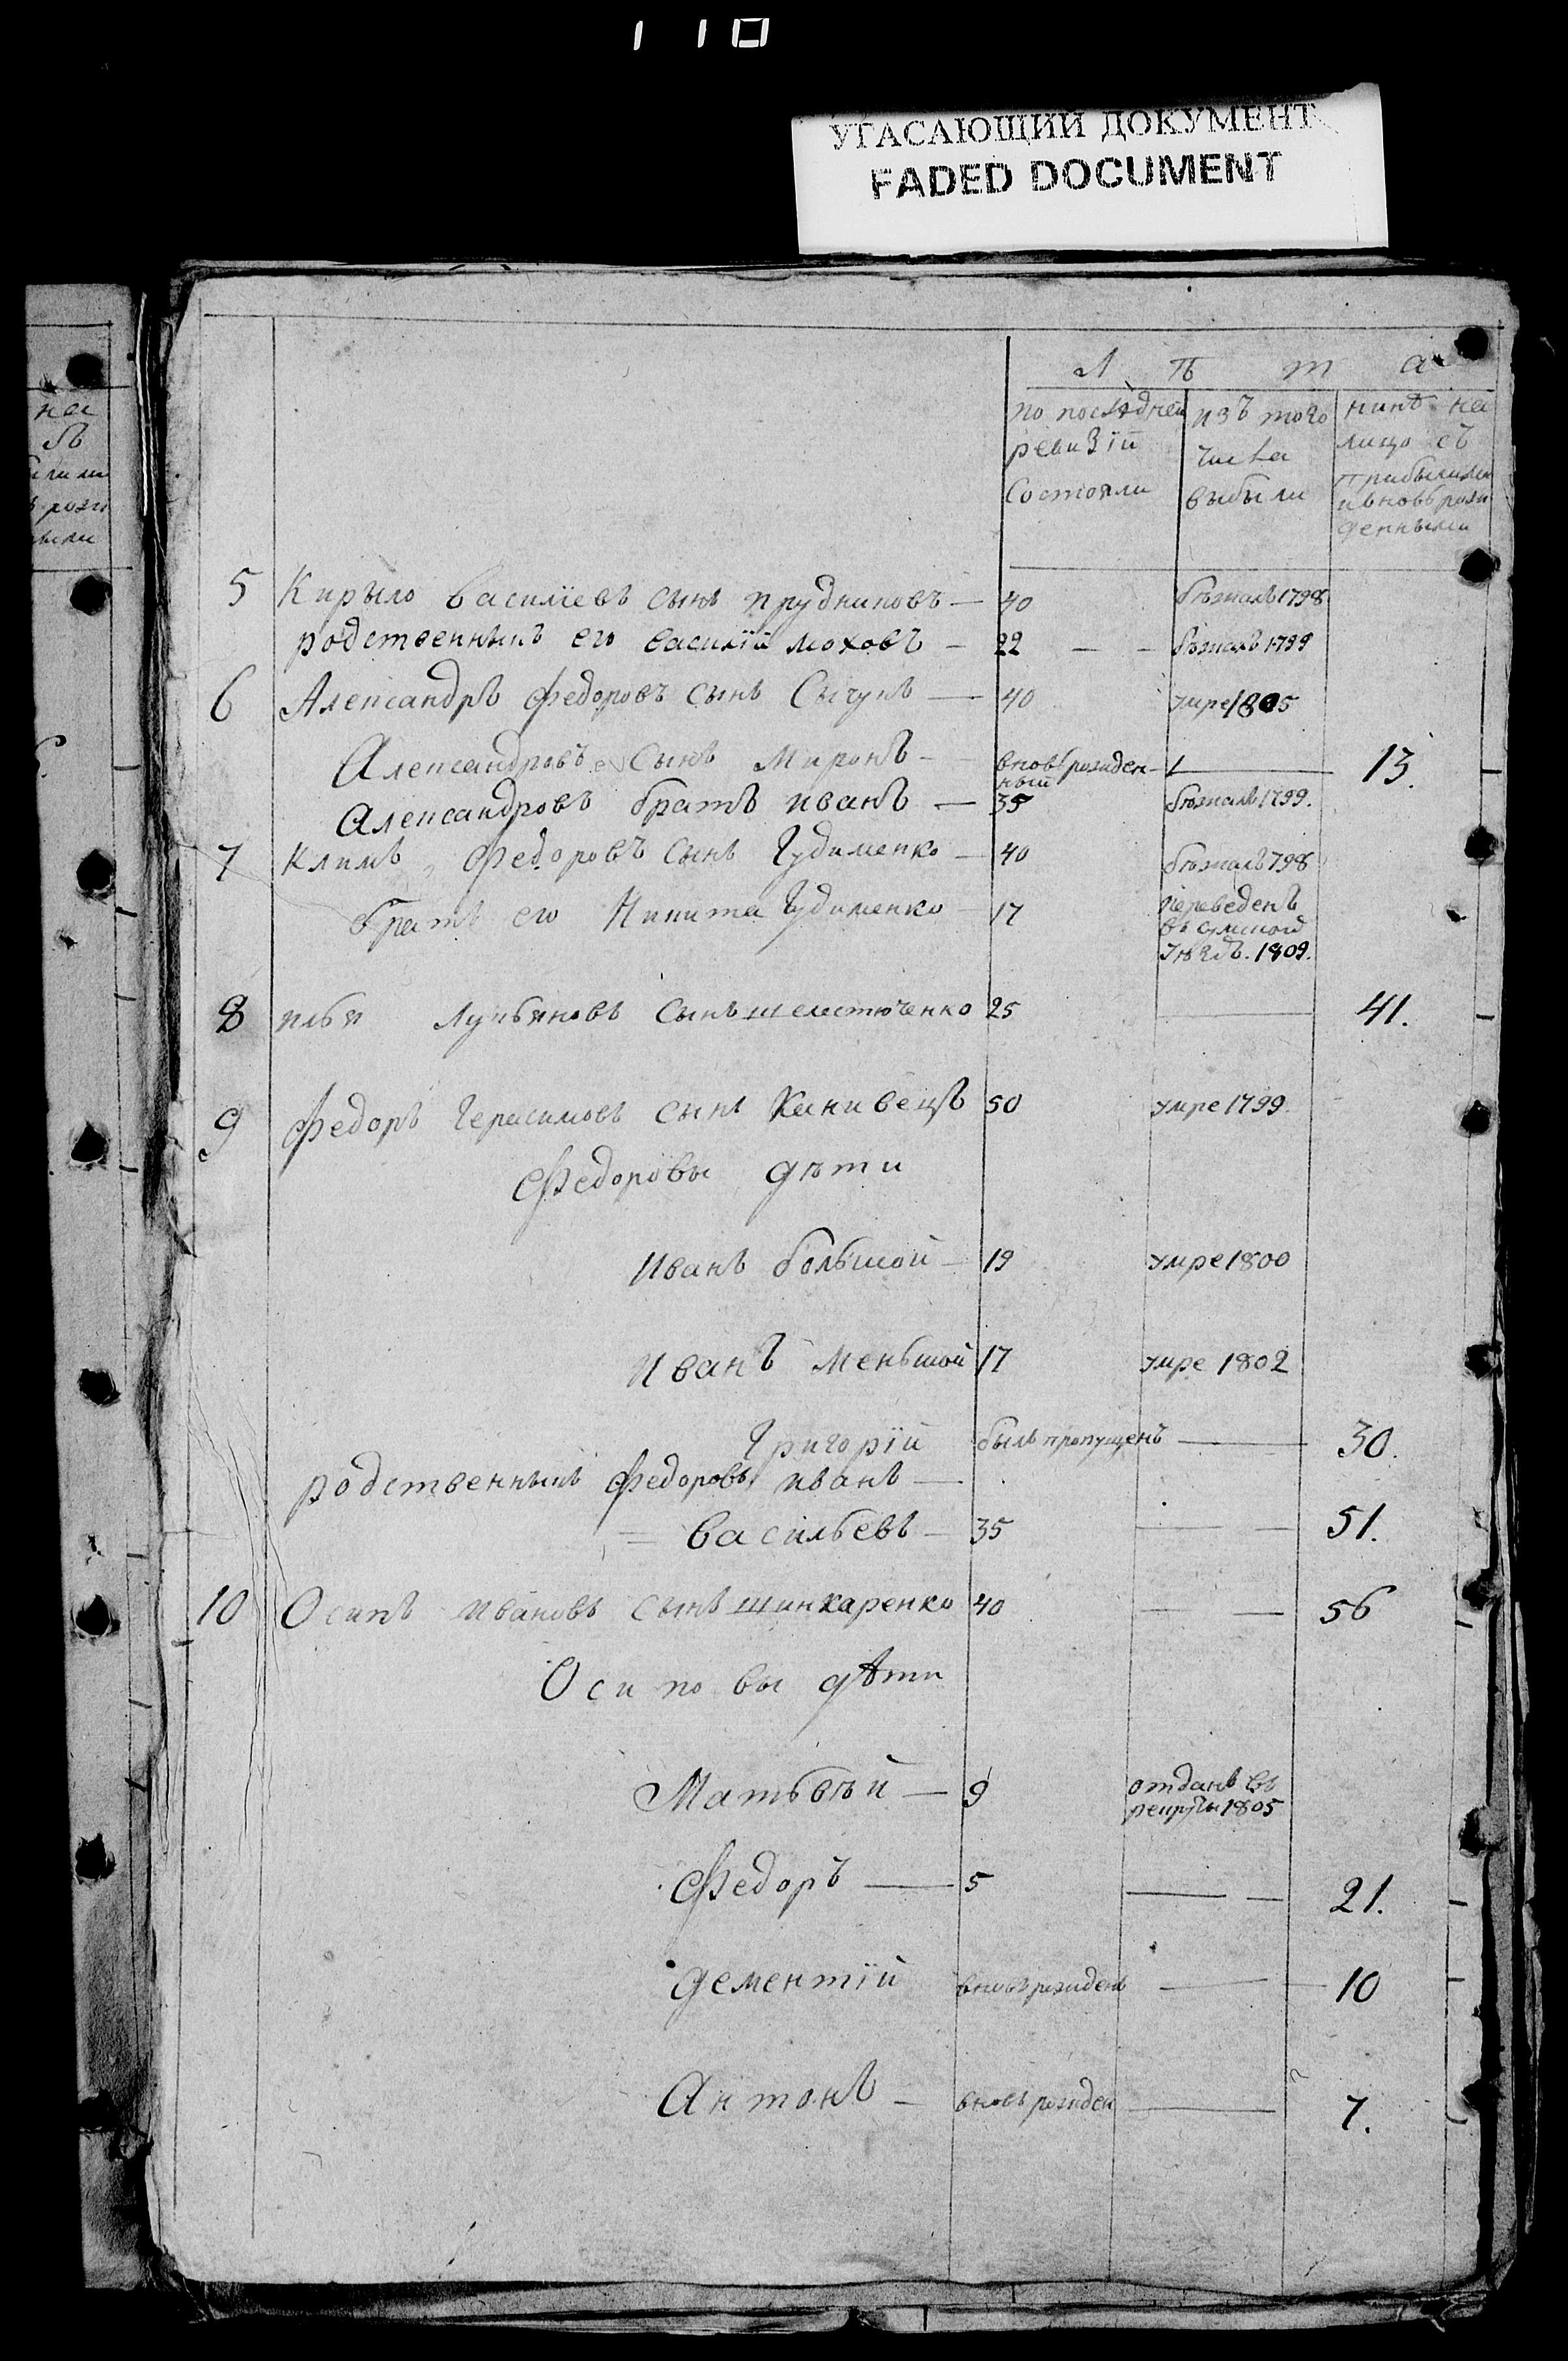 1 10
УГАСАЮЩИЙ ДОКУМЕНТ
FADED DOCUMENT
на
лѣта
по последней ревизiи состояли
изъ того числа выбыли
нинѣ на лицо съ прибылими и вновь рожденными
5 Кирыло василiевъ сынъ прудниковъ — 40 бѣжалъ 1798
родственникъ его василiй моховъ — 22 — — бѣжалъ 1799
6 Александръ федоровъ сынъ Сычукъ — 40 умре 1805
Александровъ сынъ Миронъ — вновь рожденный — 13.
Александровъ братъ иванъ — 35 бѣжалъ 1799.
7 Климъ Федоровъ сынъ Гудименко — 40 бѣжалъ 798
братъ его Никита Гудименко — 17 переведенъ въ сумской уездъ. 1809.
8 илья Лукьяновъ сынъ шелестюченко 25 — 41.
9 Федоръ Герасимовъ сынъ Канивецъ 50 умре 1799.
Федоровы дѣти
Иванъ большой — 19 умре 1800
Иванъ меньшой 17 умре 1802
Григорiй былъ пропущенъ — 30.
родственникъ федоровъ иванъ —
= васильевъ — 35 — — 51.
10 Осипъ ивановъ сынъ шинкаренко 40 — — 56
Осиповы дѣти
Матьвѣй — 9 отданъ въ рекруты 1805
Федоръ — 5 — — 21.
дементiй вновь рожденъ — — 10
Антонъ — вновь рожден — 7.